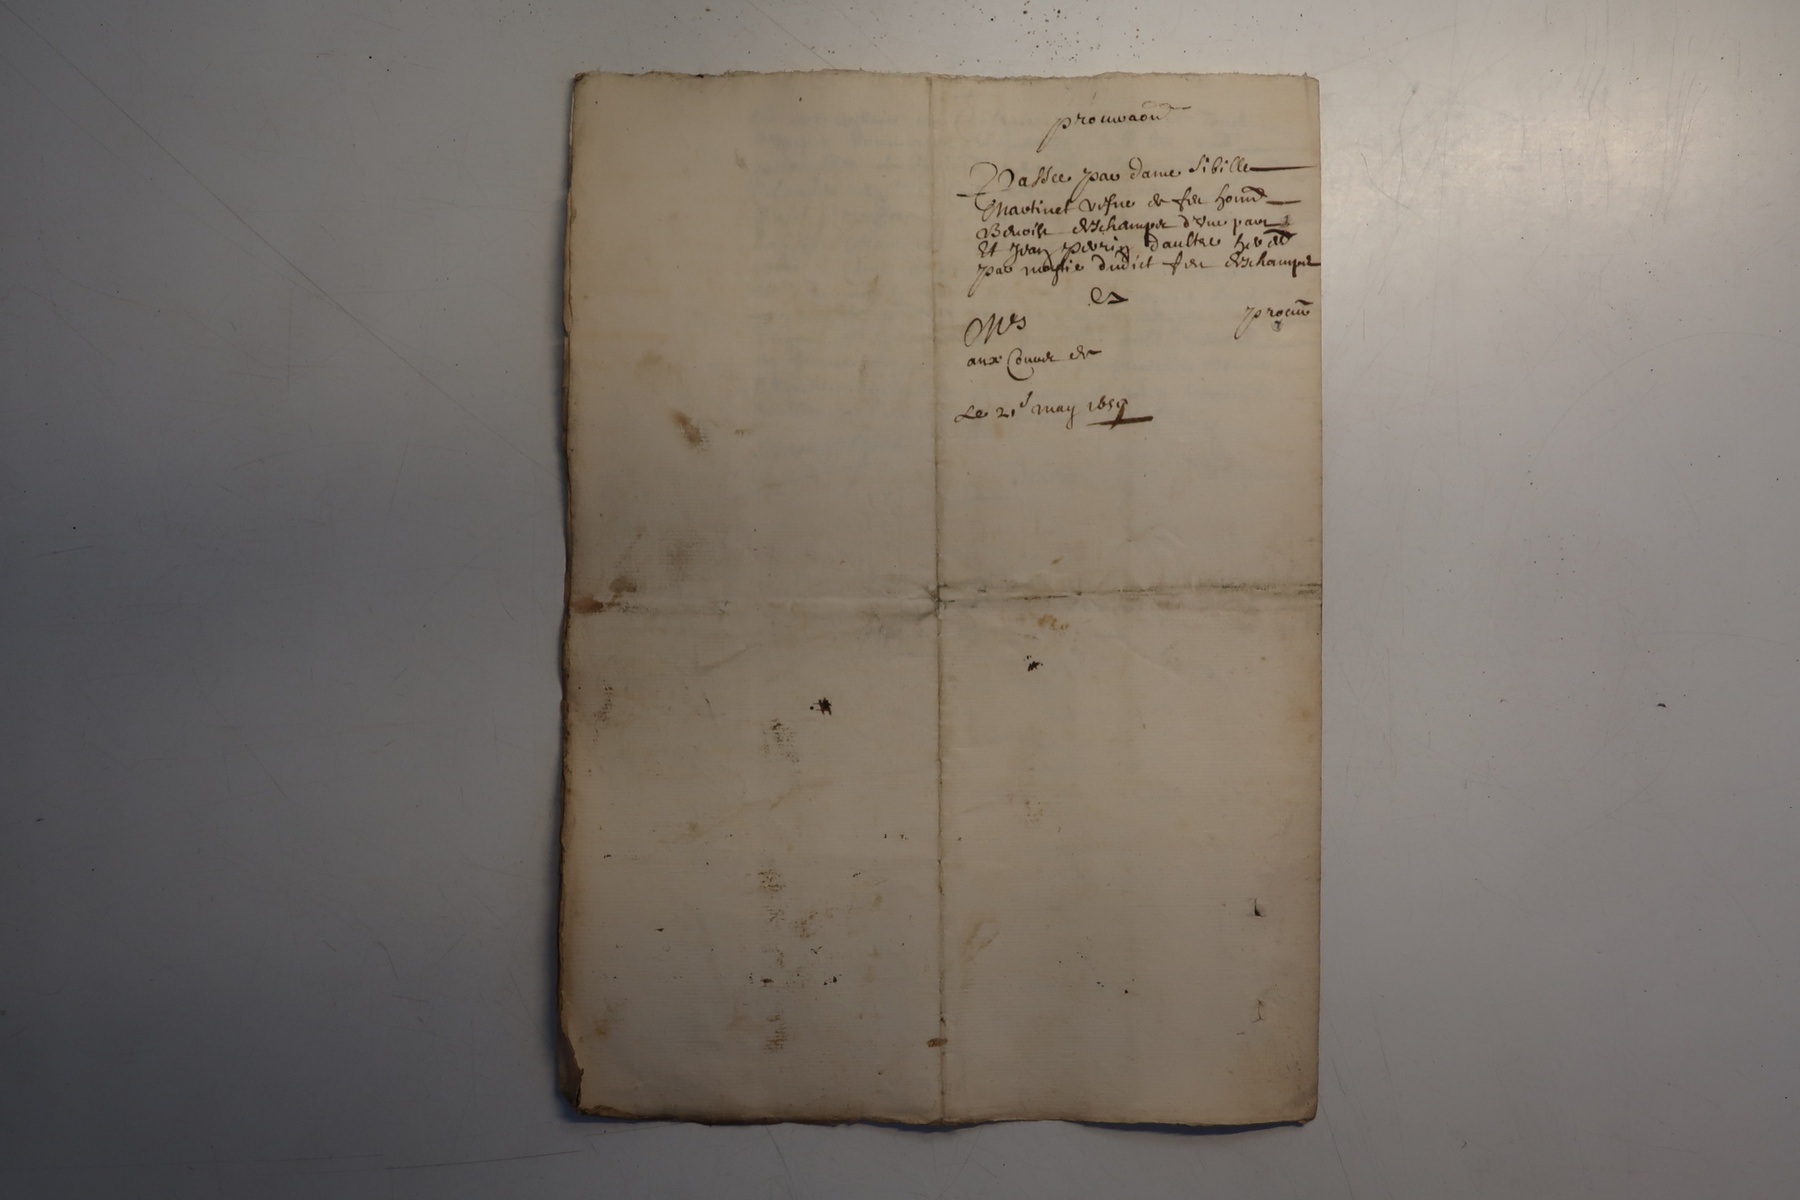 procuraon
Passee par dame Sibille
Martinet vefve de feu honn
Benoist deschamps d'une part
Et Jean Perrin d'aultre her de
par moytie dudict feu deschamps
Es
Mes procur
aux Cours de
Le 21e may 1659